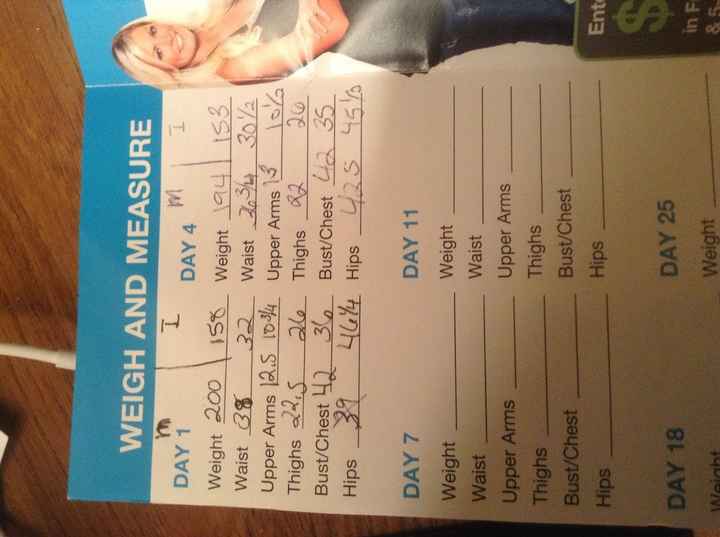 WEIGH AND MEASURE
m I
DAY 1
Weight 200 158
Waist 38 32
Upper Arms 12.5 10 3/4
Thighs 22.5 26
Bust/Chest 42 36
Hips 39 46 1/4
M I
DAY 4
Weight 194 153
Waist 36 3/4 30 1/2
Upper Arms 13 10 1/2
Thighs 22 26
Bust/Chest 42 35
Hips 42.5 45 1/2
DAY 7
Weight
Waist
Upper Arms
Thighs
Bust/Chest
Hips
DAY 11
Weight
Waist
Upper Arms
Thighs
Bust/Chest
Hips
DAY 18
Weight
DAY 25
Weight
$
in
&